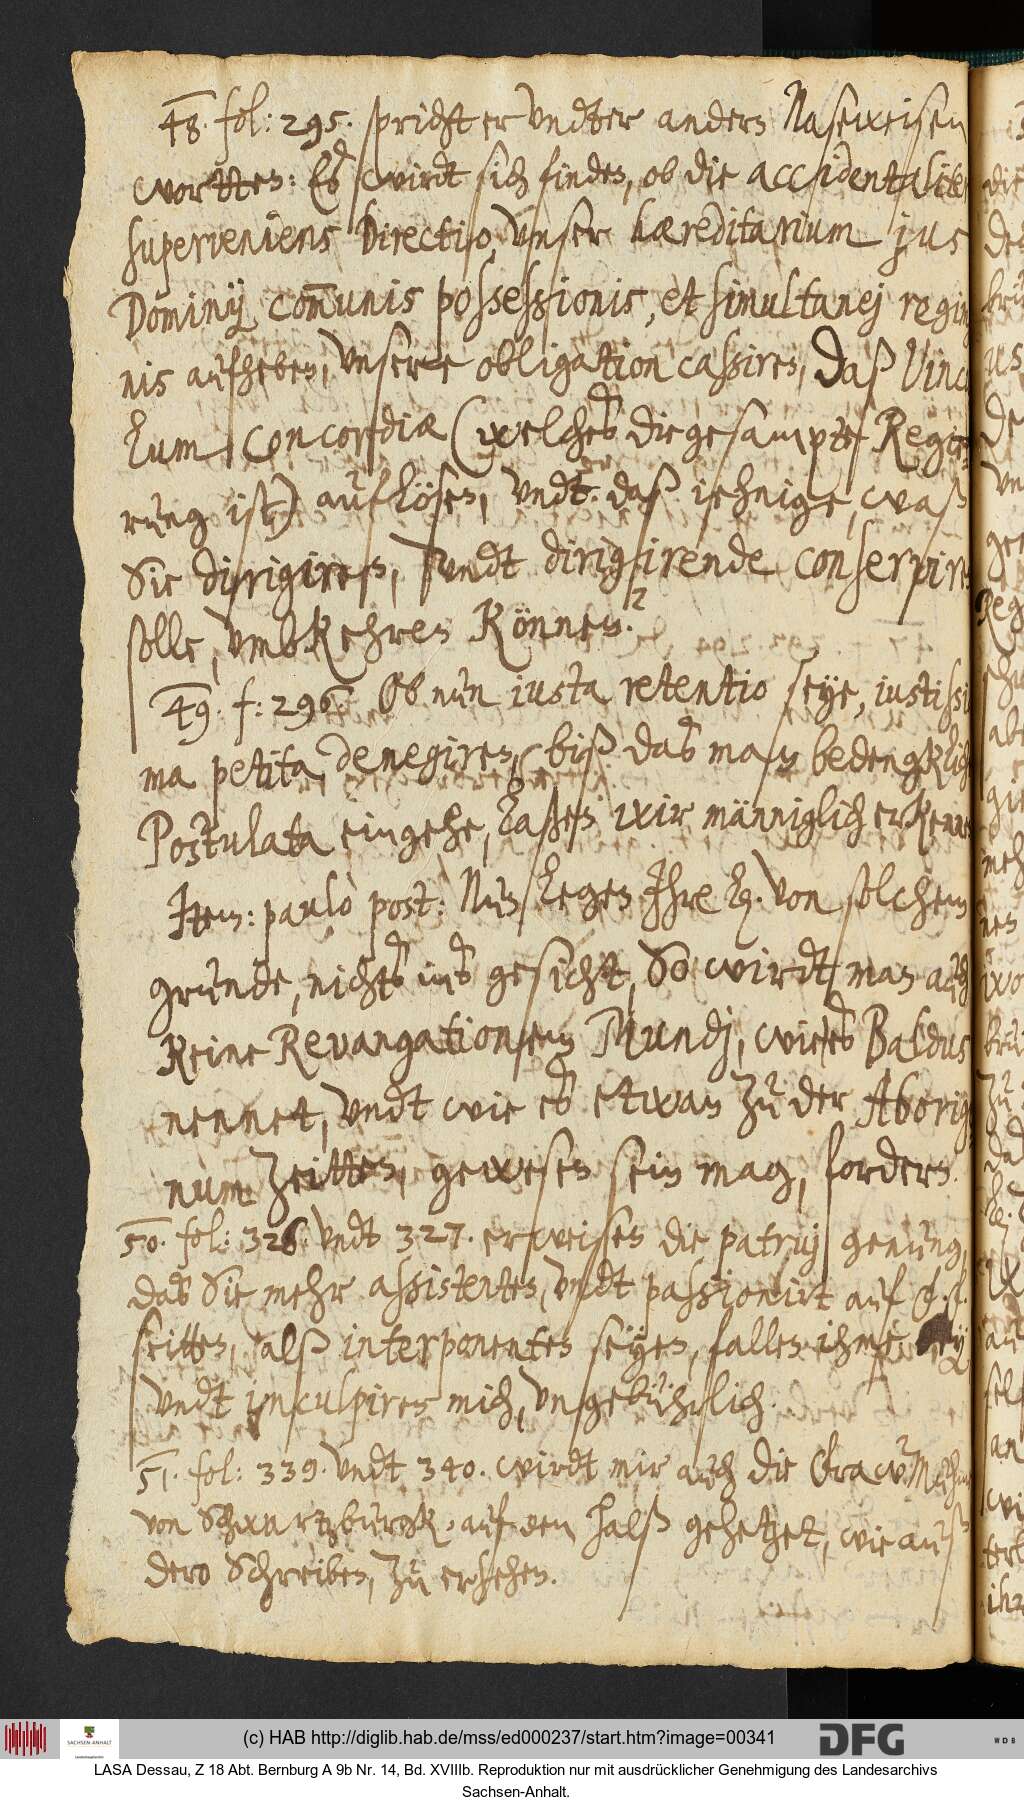 48. fol: 295. spricht er undter andern Naseweisen
wortten: Es wirdt sich finden, ob die accidentaliter
superveniens Directio, unser hæreditarium jus
Dominij, com̄unis possessionis, et simultanej regim
nis aufheben, unsere obligation cassiren, daß Vincu
lum Concordiæ (welches die gesampte Regie,,
rung ist) auflösen, undt daß jehnige, waß
Sie dirigiren, undt dirigirende conserviren
solle, umbkehren können.?
49. f: 296. Ob nun iusta retentio seye, iustissi
ma petita denegiren, biß das man bedengkliche
Postulata eingehe, laßen wir männiglich erkennen
Item: paulò post: Nun legen Ihre L. von solchem
grunde, nichts ins gesicht, So wirdt man auch
keine Revangationem Mundj, wie es Baldus
nennet, undt wie es etwan zu der Aborig,,
num Zeitten, gewesen sein mag, fordern.
50. fol: 326. undt 327. erweisen die patruj genung,
das Sie mehr assistentes, undt passionirt auf
seitten, alß interponentes seyen, fallen ihme bey
undt inculpiren mich, ungebührlich.
51. fol: 339. undt 340. wirdt mir auch die Fraw Muhm
von Schwartzburgk, auf den halß gehetzet, wie auß
dero Schreiben, zu ersehen.
(c) HAB http://diglib.hab.de/mss/ed000237/start.htm?image=00341
SACHSEN-ANHALT
DFG
WDB
LASA Dessau, Z 18 Abt. Bernburg A 9b Nr. 14, Bd. XVIIIb. Reproduktion nur mit ausdrücklicher Genehmigung des Landesarchivs
Sachsen-Anhalt.